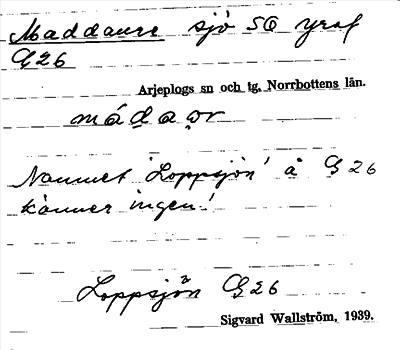 Maddaure sjö SO Yraf
G26
Arjeplogs sn och tg, Norrbottens län.
mádao̬r
Namnet 'Loppsjön' å G26
känner ingen!
Loppsjön G26
Sigvard Wallström, 1939.